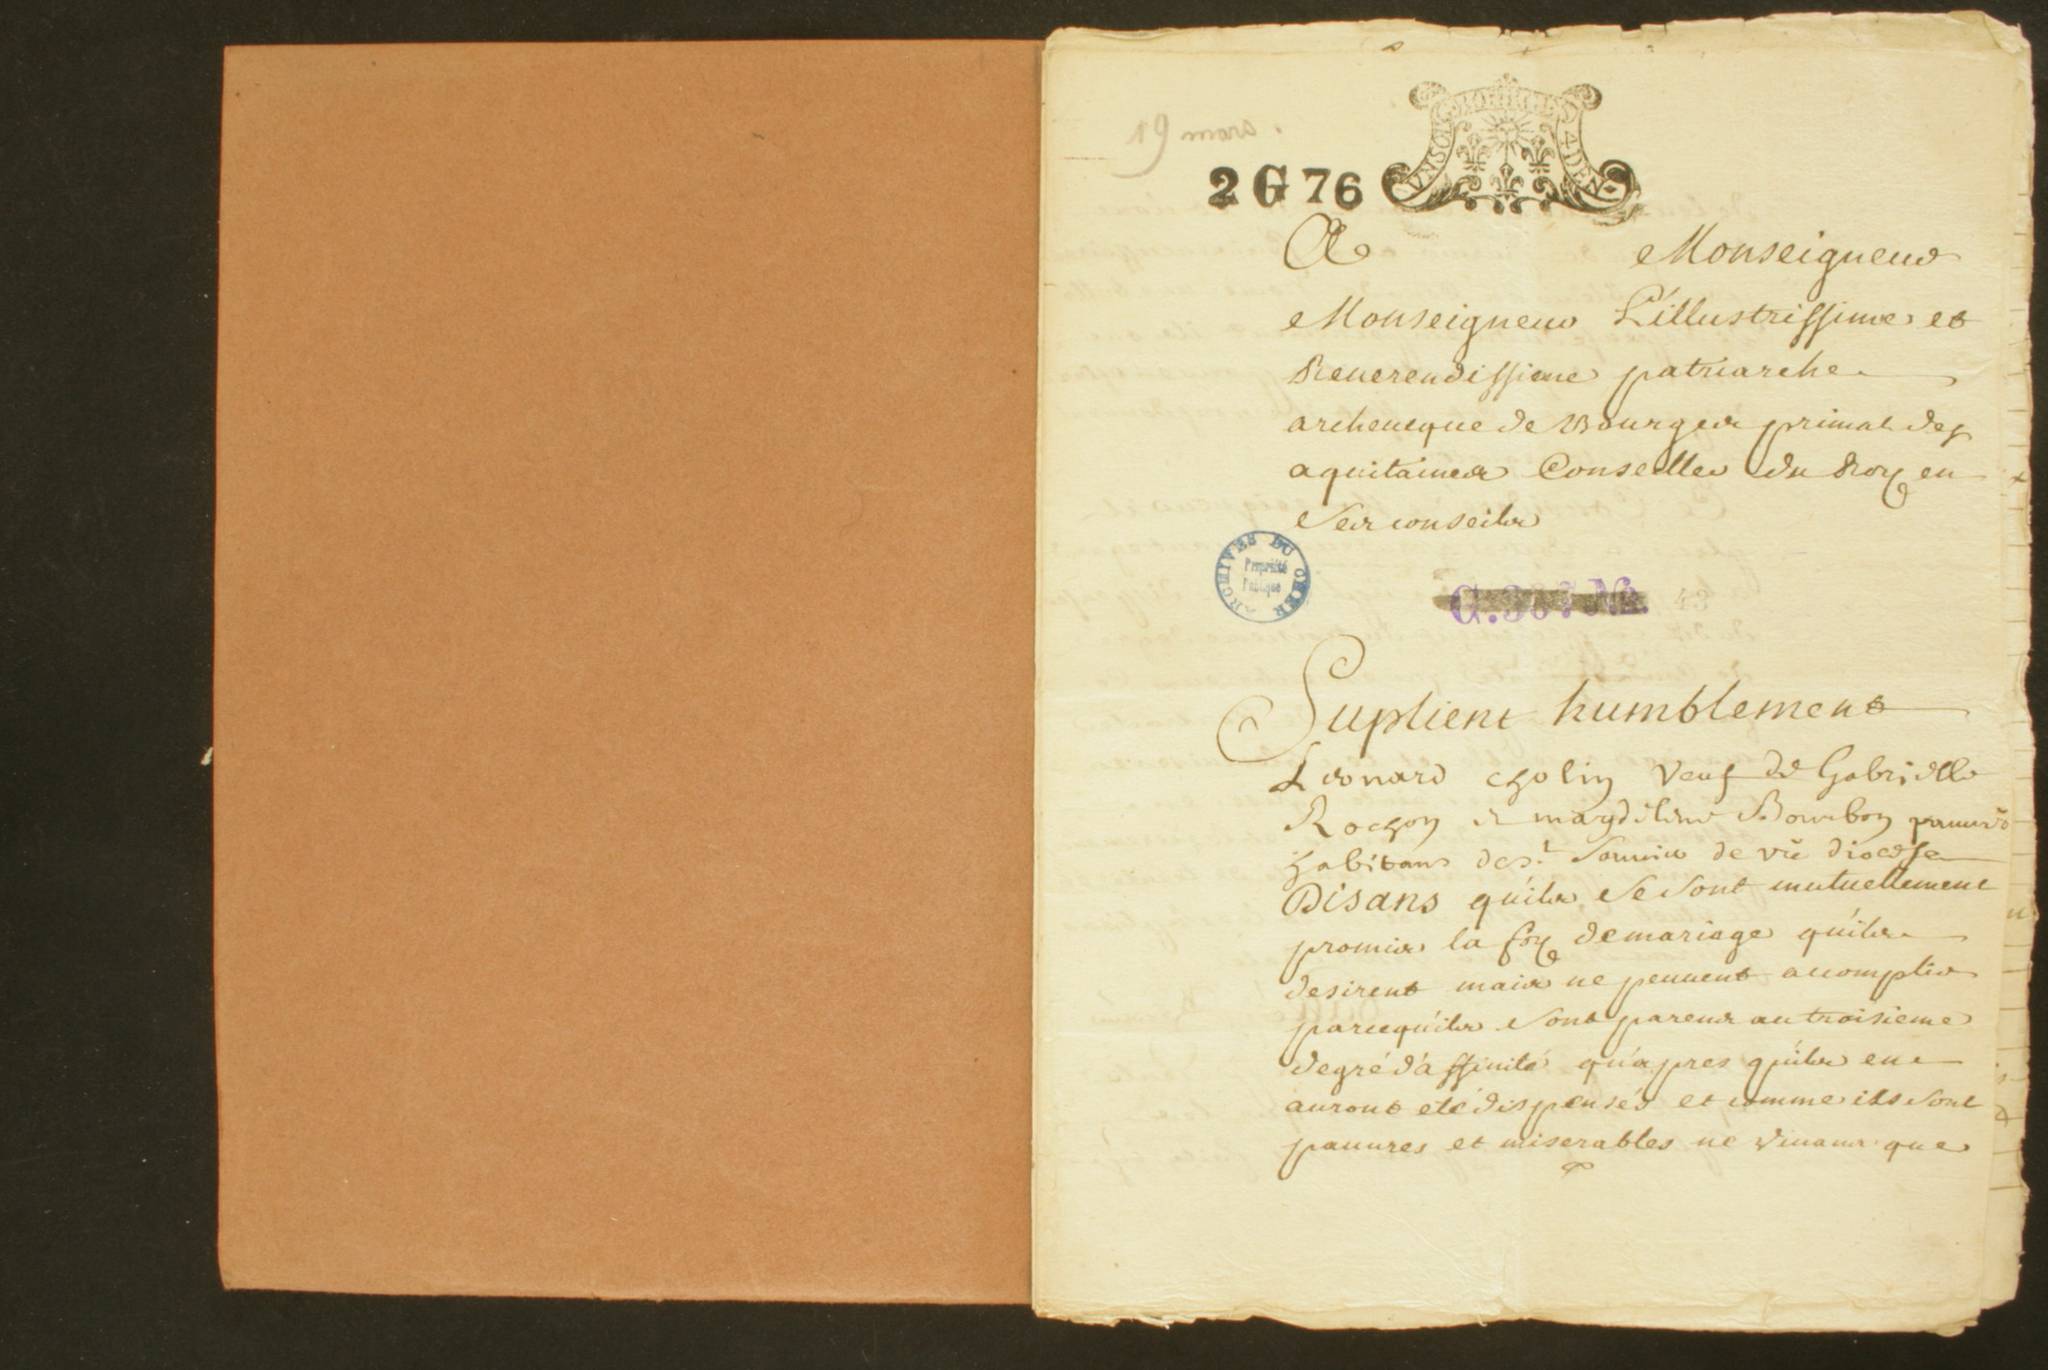 2 G 76
VN SOL 4 DEN
A Monseigneur
Monseigneur L'illustrissime et
Reuerendissime patriarche
archeueque de Bourges primat des
aquitaines Conseiller du Roy en
ses conseils
ARCHIVES DU CHER
Propriété
Publique
G. 43
Suplient humblement
Leonard cholin veuf de Gabrielle
Rochon et magdelene Bourbon pauures
habitans de st de vre diocese
Disans qu'ils se sont mutuellement
promis la foy de mariage qu'ils
desirent mais ne peuuent accomplir
parcequ'ils sont parens au troisieme
degré d'affinité qu'apres qu'ils en
auront eté dispensés et comme ils sont
pauures et miserables ne viuans que